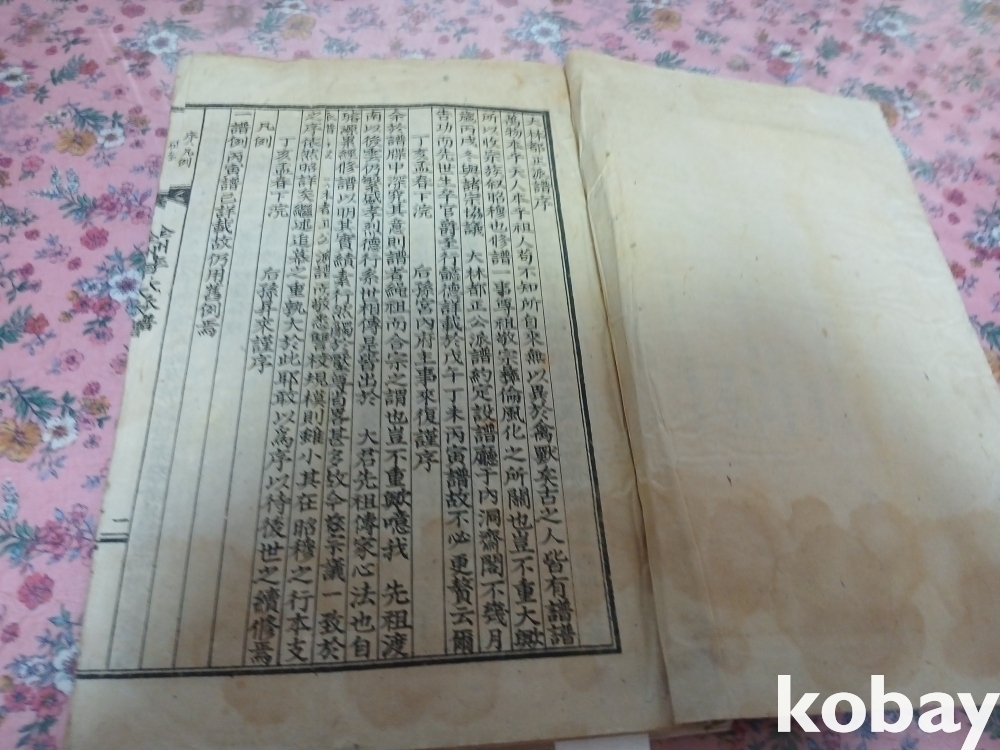 大林都正派譜序
萬物本乎天人本乎祖人苟不知所自來無以異於禽獸矣古之人皆有譜譜
所以收宗族叙昭穆也修譜一事尊祖敬宗彝倫風化之所關也豈不重大歟
歲丙戌冬與諸宗協議 大林都正公派譜約定設譜廳于內洞齋閣不幾月
告功而先世生卒官爵至行懿德詳載於戊午丁未丙寅譜故不必更贅云爾
丁亥孟春下浣 后孫宮內府主事來復謹序
余於譜牒中深究其意則譜者繩祖而合宗之謂也豈不重歟噫我 先祖渡
南以後雲仍繁盛孝烈德行系世相傳是皆出於 大君先祖傳家心法也自
累經修譜以明其實績素行然 宗議一致於
規模則雖小其在昭穆之行本支
之序依然昭詳矣繼述追慕之重孰大於此耶敢以爲序以待後世之續修焉
丁亥孟春下浣 后孫昇來謹序
凡例
一譜例丙寅譜已詳載故仍用舊例焉
序 凡例
二
kobay